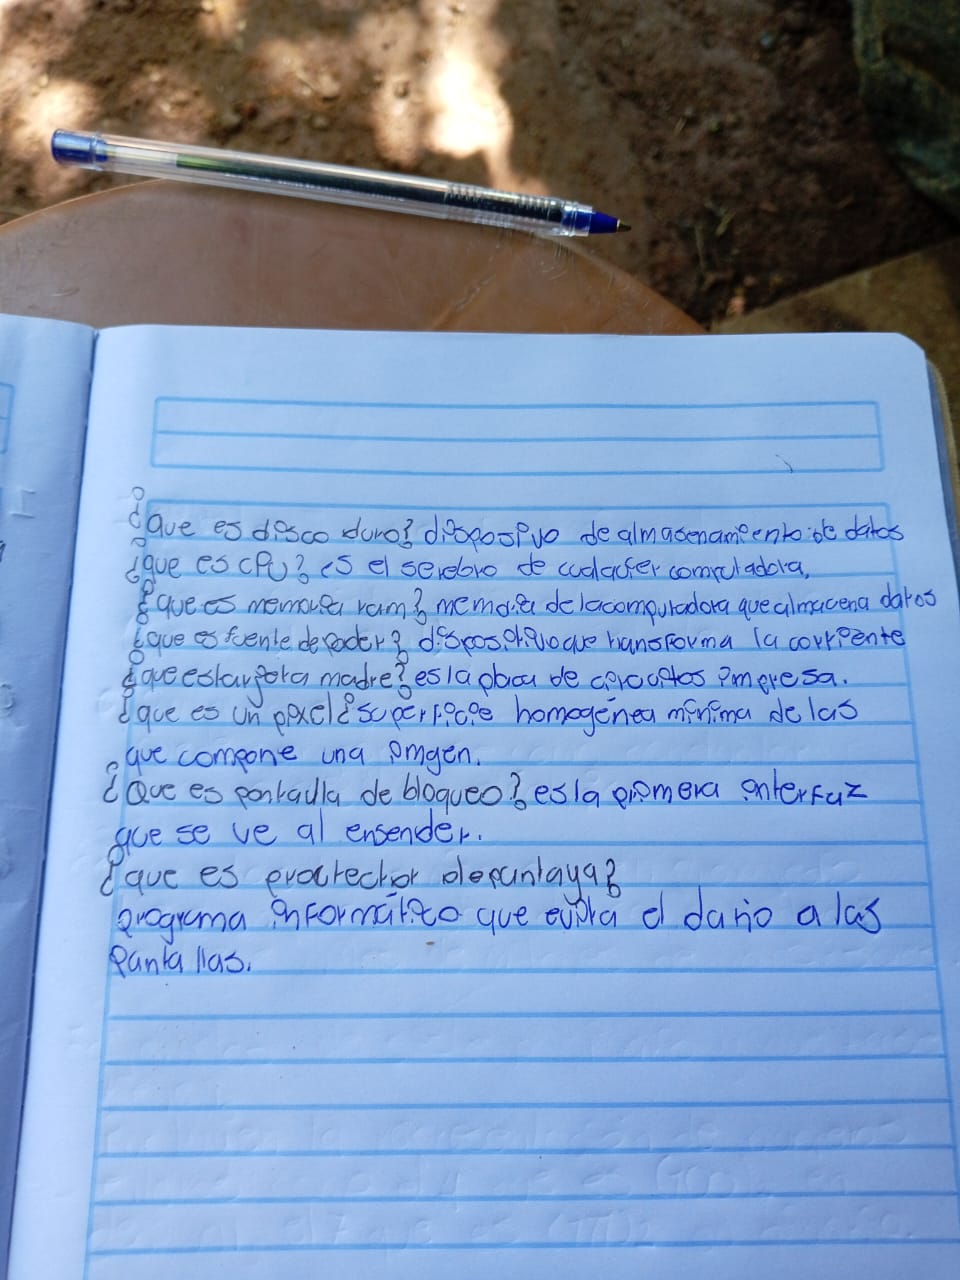 ¿Que es disco duro? disposivo de almasenamiento de datos
¿que es CPU? es el serebro de cualquier computadora,
¿que es memoria ram? memoria de la computadora que almacena datos
¿que es fuente de poder? dispositivo que transforma la corriente
¿que es tarjeta madre? es la placa de circuitos impresa.
¿que es un pixel¿ superficie homogénea mínima de las
que compone una imgen.
¿Que es pantalla de bloqueo? es la primera interfaz
que se ve al ensender.
¿que es protector de pantaya?
programa informático que evita el daño a las
Pantallas.